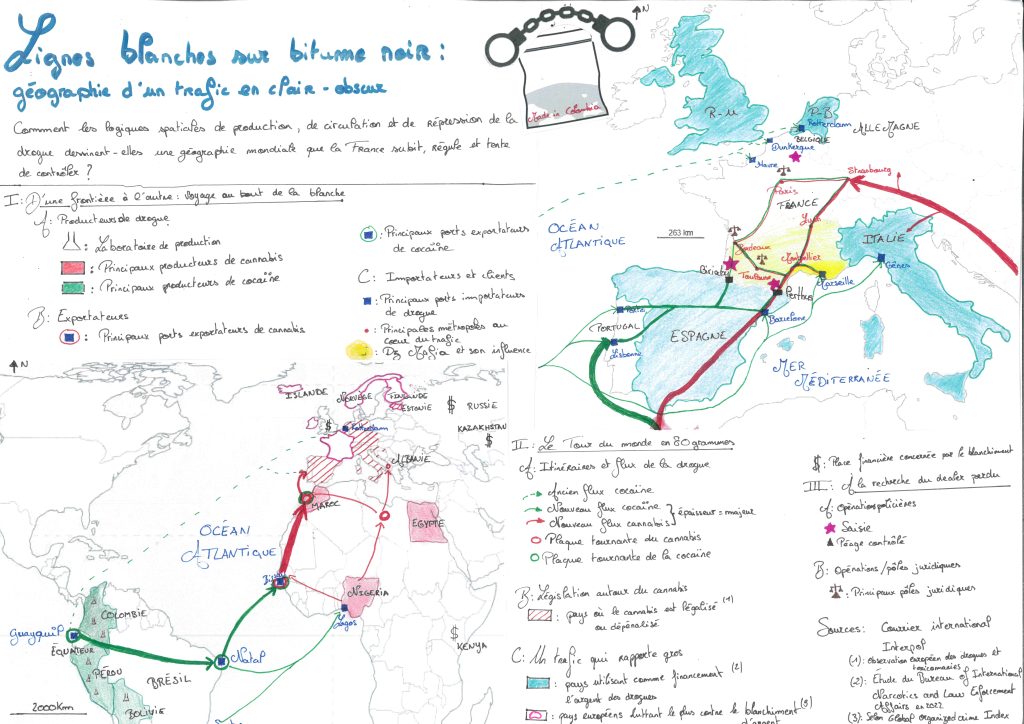 Lignes blanches sur bitume noir :
géographie d'un trafic en clair-obscur
Comment les logiques spatiales de production, de circulation et de répression de la
drogue dessinent-elles une géographie mondiale que la France subit, régule et tente
de contrôler ?
Made in Colombia
I : D'une frontière à l'autre : voyage au bout de la blanche
A : Producteurs de drogue
: Laboratoire de production
: Principaux producteurs de cannabis
: Principaux producteurs de cocaïne
B : Exportateurs
: Principaux ports exportateurs de cannabis
: Principaux ports exportateurs
de cocaïne
C : Importateurs et clients
: Principaux ports importateurs
de drogue
: Principales métropoles au
coeur du trafic
: Dz Mafia et son influence
N
R-U
P-B
Rotterdam
ALLEMAGNE
BELGIQUE
Dunkerque
Havre
Strasbourg
Paris
FRANCE
Lyon
OCÉAN
ATLANTIQUE
263 km
ITALIE
Bordeaux
Montpellier
Gênes
Biriatou
Toulouse
Marseille
Perthus
Porto
Barcelone
PORTUGAL
ESPAGNE
Lisbonne
MER
MÉDITERRANÉE
N
ISLANDE
NORVÈGE
FINLANDE
ESTONIE
$
RUSSIE
$
Rotterdam
KAZAKHSTAN
$
ALBANIE
MAROC
OCÉAN
ATLANTIQUE
EGYPTE
NIGERIA
Lagos
COLOMBIE
Guayaquil
ÉQUATEUR
Natal
$
KENYA
PÉROU
BRÉSIL
BOLIVIE
2000 Km
II : Le Tour du monde en 80 grammes
A : Itinéraires et flux de la drogue
: Ancien flux cocaïne
: Nouveau flux cocaïne
: Nouveau flux cannabis
} épaisseur : majeur
: Plaque tournante du cannabis
: Plaque tournante de la cocaïne
B : Législation autour du cannabis
: pays où le cannabis est légalisé (1)
ou dépénalisé
C : Un trafic qui rapporte gros
: pays utilisant comme financement (2)
l'argent des drogues
: pays européens luttant le plus contre le blanchiment (3)
d'argent
$ : Place financière concernée par le blanchiment
III : A la recherche du dealer perdu
A : Opérations policières
: Saisie
: Péage contrôlé
B : Opérations/pôles juridiques
: Principaux pôles juridiques
Sources : Courrier international
Interpol
(1) : Observation européen des drogues et
toxicomanies
(2) : Étude du Bureau of International
Narcotics and Law Enforcement
Affairs en 2022
(3) : Selon Global organized crime Index